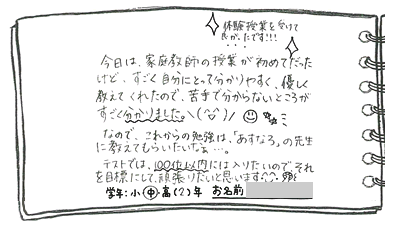 体験授業を受けて
良かったです!!!
今日は、家庭教師の授業が初めてだった
けど、すごく自分にとって分かりやすく、優しく
教えてくれたので、苦手で分からないところが
すごく分かりました。\(^▽^)/
なので、これからの勉強は、「あすなろ」の先生
に教えてもらいたいなぁ…。
テストでは、100位以内には入りたいので それ
を目標にして、頑張りたいと思います^^
学年:小・中・高(2)年 お名前